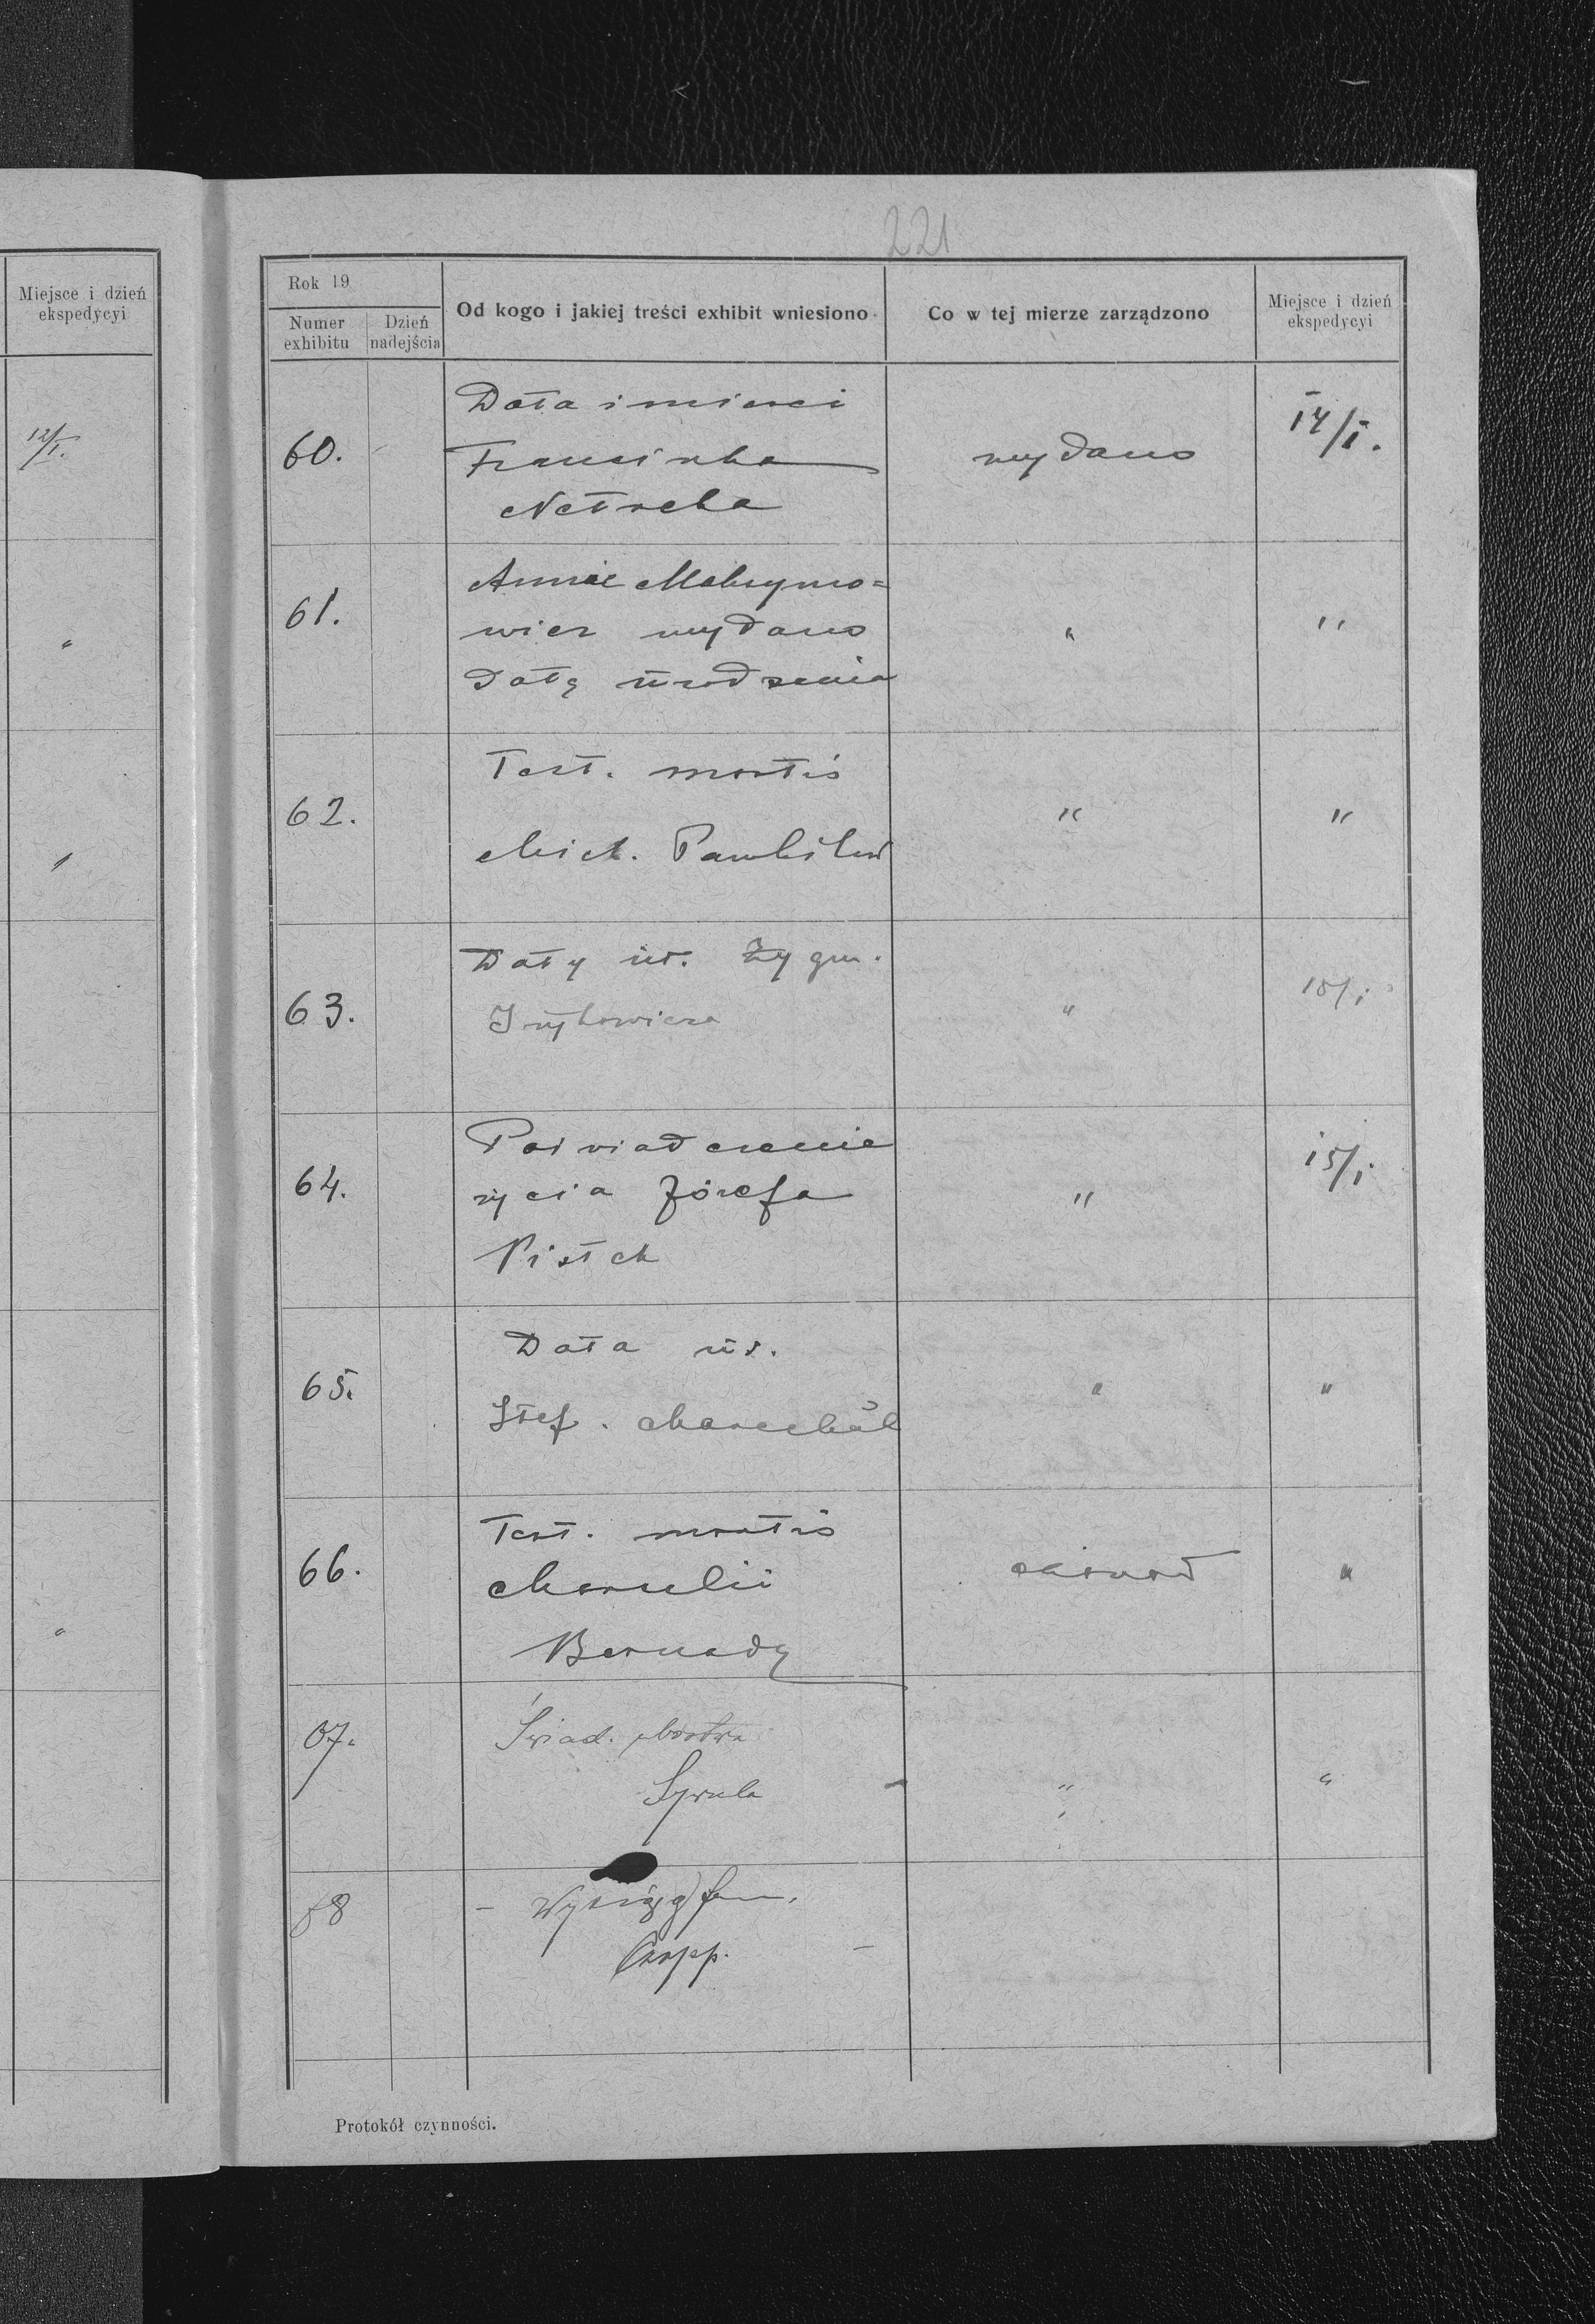 221
Miejsce i dzień
ekspedycyi
12/I.
"
"
"
Rok 19
Numer
exhibitu
Dzień
nadejścia
Od kogo i jakiej treści exhibit wniesiono
Co w tej mierze zarządzono
Miejsce i dzień
ekspedycyi
60.
Data śmierci
Franciszka
Netreba
wydano
14/I.
61.
Annie Maksymo=
wicz wydano
datę urodzenia
"
"
62.
Test. mortis
Mich. Pawlików
"
"
63.
Daty ur. Zygm.
"
15/I
64.
Poświadczenie
życia Józefa
"
15/I.
65.
Data ur.
Stef.
"
"
66.
Test. mortis
"
67.
Świad.
"
"
68
- Wyciąg fam.
-
Protokół czynności.